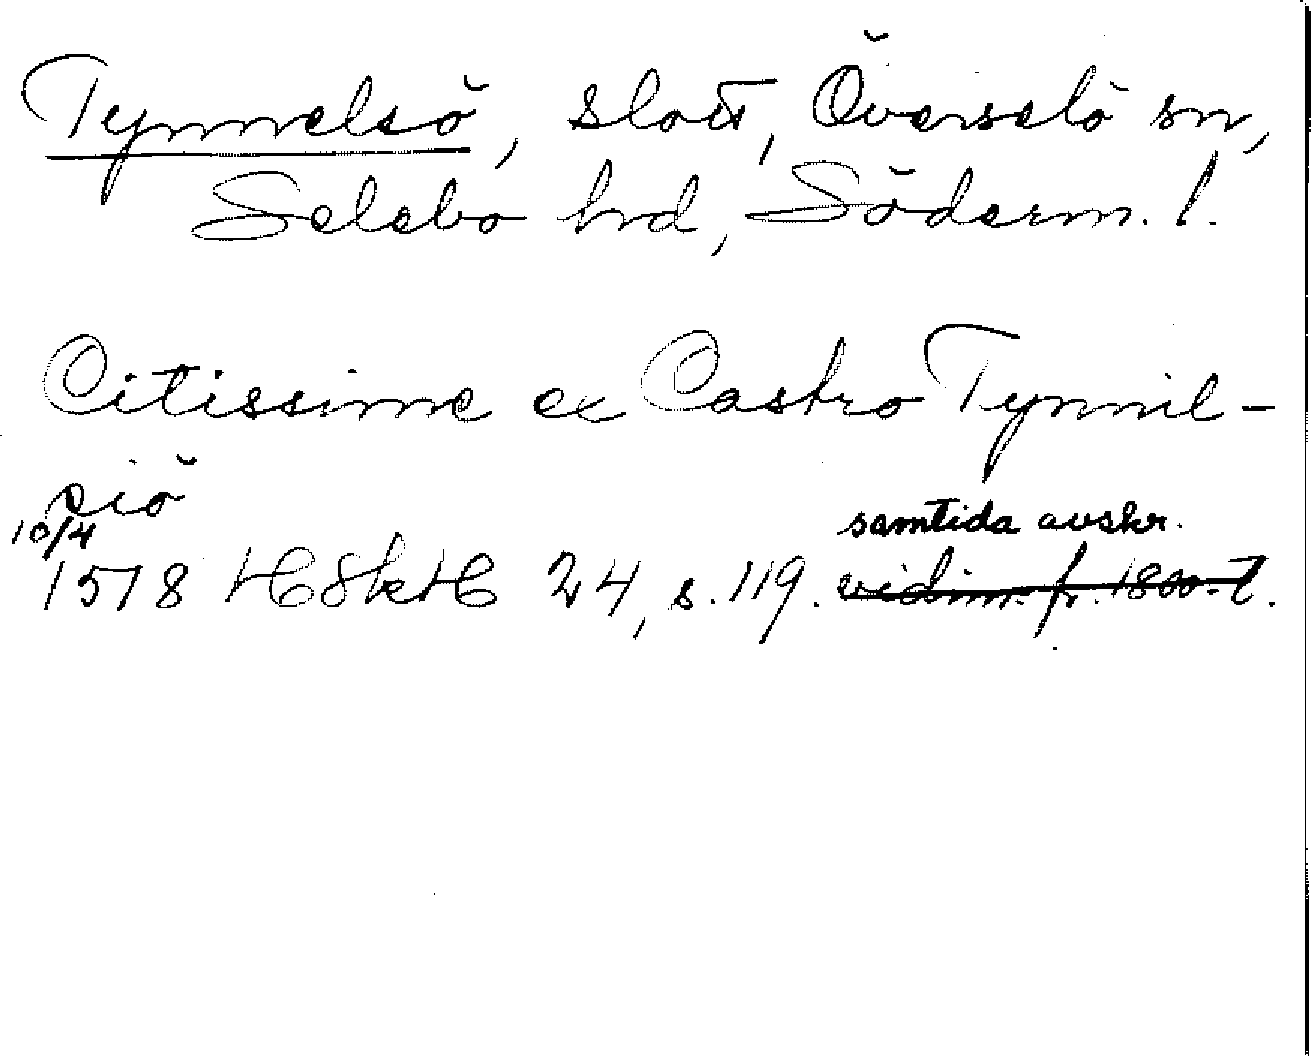 Tynnelsö, slott, Överselö sn,
Selebo hd, Söderm. l.
Citissime ex Castro Tynnil-
siö
10/4
samtida avskr.
1578 HSkH 24, s. 119. vidim. fr. 1800-t.